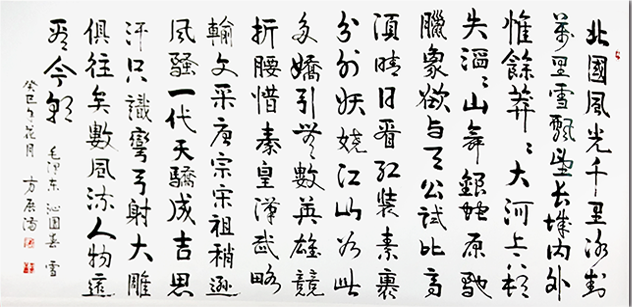 北國風光千里冰封
萬里雪飄望长城内外
惟餘莽〻大河上下頓
失滔〻山舞銀蛇原馳
臘象欲与天公試比高
須晴日看红装素裹
分外妖嬈江山如此
多嬌引無數英雄競
折腰惜秦皇漢武略
輸文采唐宗宋祖稍遜
風騷一代天驕成吉思
汗只識彎弓射大雕
俱往矣數風流人物還
看今朝
毛泽东 沁园春 雪
癸巳年花月 方